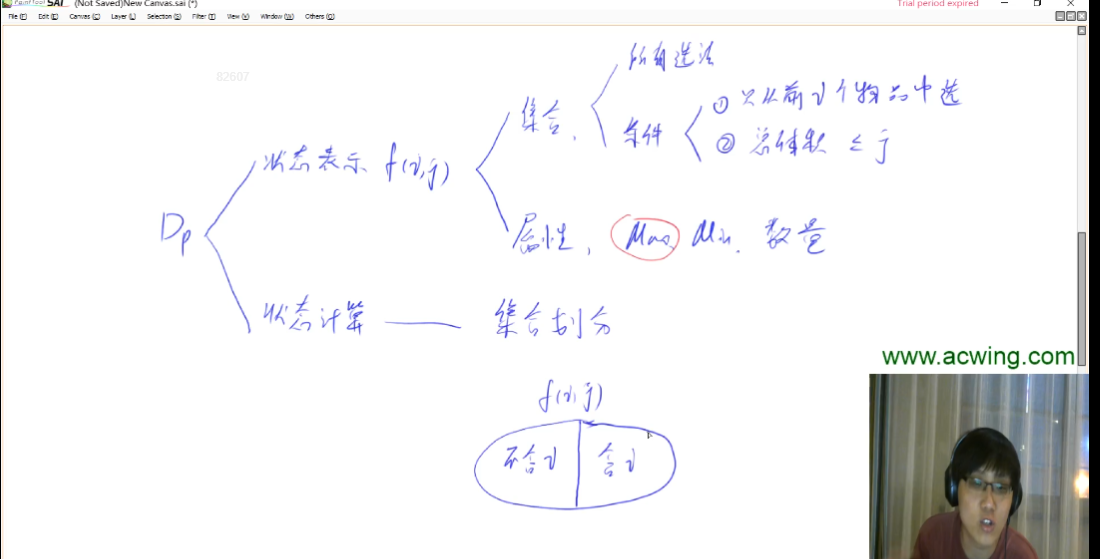 PaintTool SAI (Not Saved)New Canvas.sai (*) Trial period expired
File (F) Edit (E) Canvas (C) Layer (L) Selection (S) Filter (T) View (V) Window (W) Others (O)
82607
所有选法
集合.
条件
① 只从前i个物品中选
② 总体积 ≤ j
状态表示 f(i,j)
Dp
属性, Max Min. 数量
状态计算 集合划分
www.acwing.com
f(i,j)
不含i 含i